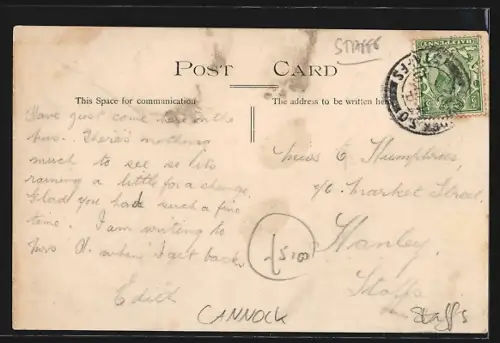 STAFFS
POST CARD
This Space for communication
The address to be written here
HALFPENNY
STAFFS
Have just come here on the
bus. There's nothing
much to see so its
raining a little for a change.
Glad you had such a fine
time. I am writing to
Mrs when I get back
Edith
Miss E Humphries,
Market Street,
Hanley,
Staffs
CANNOCK
Staffs